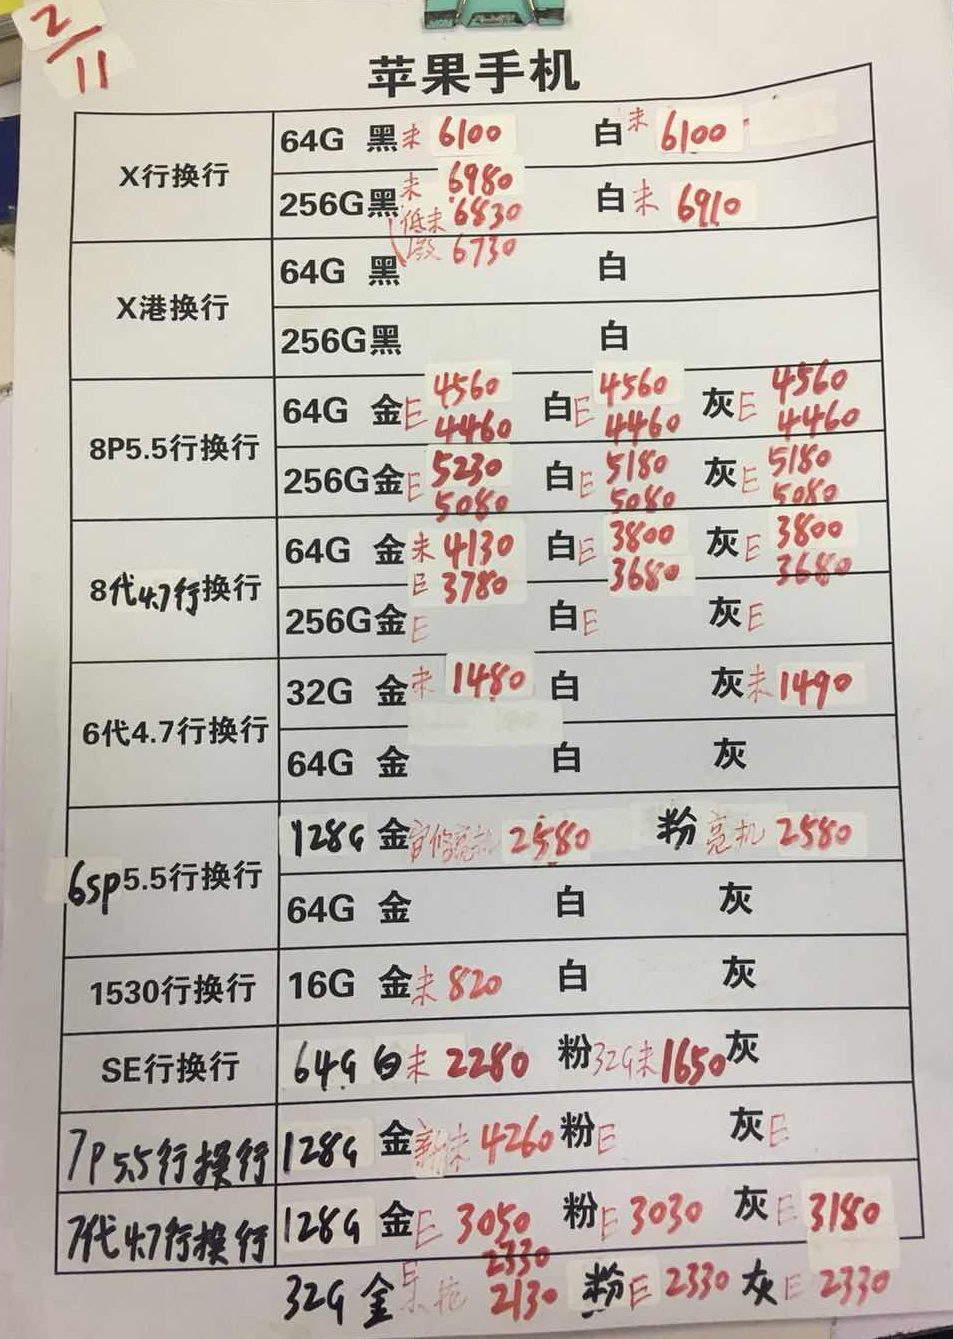 2/11
苹果手机
X行换行
64G 黑 未 6100 白 未 6100
256G 黑 未 6980 白 未 6910
低未 6830
6730
X港换行
64G 黑 白
256G 黑 白
8P5.5行换行
64G 金 E 4560 白 E 4560 灰 E 4560
4460 4460 4460
256G 金 E 5230 白 E 5180 灰 E 5180
5080 5080 5080
8代4.7行换行
64G 金 未 4130 白 E 3800 灰 E 3800
E 3780 3680 3680
256G 金 E 白 E 灰 E
6代4.7行换行
32G 金 未 1480 白 灰 未 1490
64G 金 白 灰
6sp5.5行换行
128G 金 官修亮机 2580 粉 亮机 2580
64G 金 白 灰
1530行换行
16G 金 未 820 白 灰
SE行换行
64G 白 未 2280 粉 32G未 1650 灰
7P5.5行换行
128G 金 未 4260 粉 E 灰 E
7代4.7行换行
128G 金 E 3050 粉 E 3030 灰 E 3180
2330
32G 金 E 2130 粉 E 2330 灰 E 2330